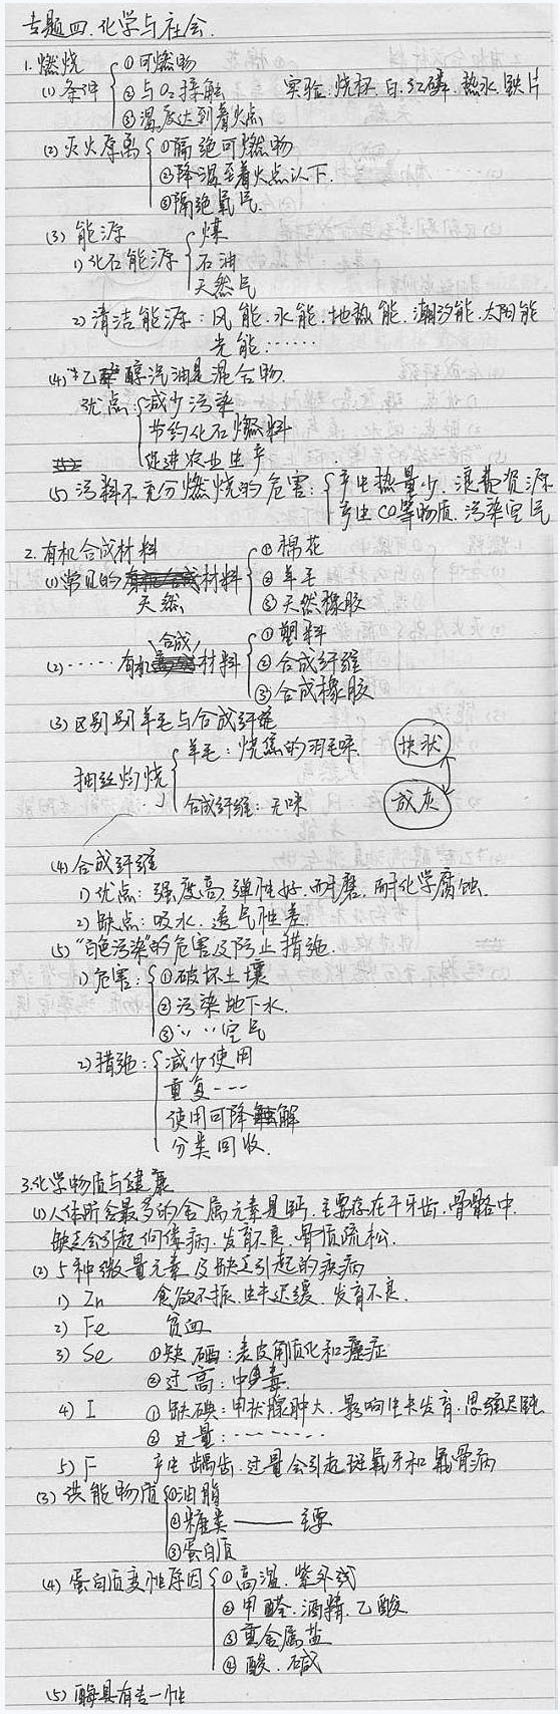 专题四.化学与社会.
1.燃烧
(1)条件 ①可燃物
②与O₂接触
③温度达到着火点
实验:烧杯.白.红磷.热水.铁片
(2)灭火原离 ①隔绝可燃物
②降温至着火点以下.
③隔绝氧气.
(3)能源
1)化石能源 煤
石油
天然气
2)清洁能源:风能.水能.地热能.潮汐能.太阳能
光能……
(4)乙醇汽油是混合物.
优点:减少污染
节约化石燃料
促进农业生产
(5)污料不充分燃烧的危害:产生热量少.浪费资源
产生CO等物质.污染空气
2.有机合成材料
(1)常见的天然材料 ①棉花
②羊毛
③天然橡胶
(2)……有机合成材料 ①塑料
②合成纤维
③合成橡胶
(3)区别别羊毛与合成纤维
抽丝灼烧 羊毛:烧焦的羽毛味. 块状
合成纤维:无味 成灰
(4)合成纤维
1)优点:强度高.弹性好.耐磨.耐化学腐蚀.
2)缺点:吸水.透气性差.
(5)“白色污染”的危害及防止措施.
1)危害:①破坏土壤
②污染地下水.
③〃 〃空气
2)措施:减少使用
重复---
使用可降解
分类回收.
3.化学物质与健康
(1)人体所含最多的金属元素是钙.主要存在于牙齿.骨骼中.
缺乏会引起佝偻病.发育不良.骨质疏松.
(2)5种微量元素及缺乏引起的疾病
1)Zn 食欲不振.生长迟缓.发育不良.
2)Fe 贫血
3)Se ①缺硒:表皮角质化和癌症
②过高:中毒.
4)I ①缺碘:甲状腺肿大.影响生长发育.思维迟钝
②过量:………
5)F 产生龋齿.过量会引起斑氟牙和氟骨病
(3)供能物质 ①油脂
②糖类——主要
③蛋白质
(4)蛋白质变性原因 ①高温.紫外线
②甲醛.酒精.乙酸
③重金属盐
④酸.碱
(5)酶具有专一性